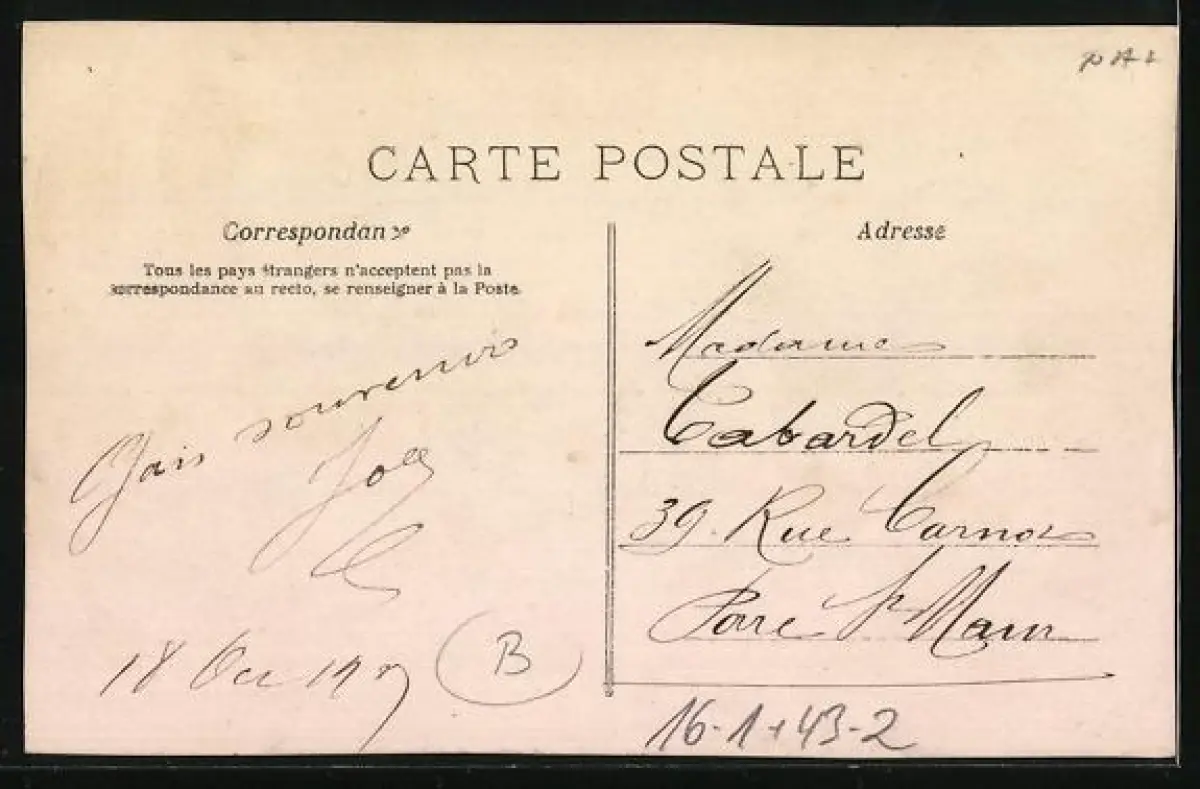 CARTE POSTALE
Correspondance
Tous les pays étrangers n'acceptent pas la
correspondance au recto, se renseigner à la Poste.
Gais souvenirs
18 Oct 1907
B
Adresse
Madame
Cabardel
39. Rue Carnot
Parc St Maur
16-1+43-2